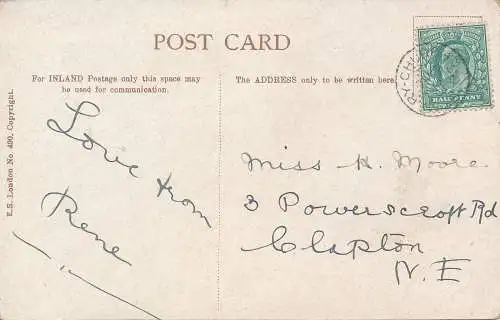 POST CARD
For INLAND Postage only this space may
be used for communication.
The ADDRESS only to be written here.
E.S. London No 490, Copyright.
Love from
Rene
Miss H. Moore
3 Powerscroft Rd
Clapton
N.E
HALF PENNY